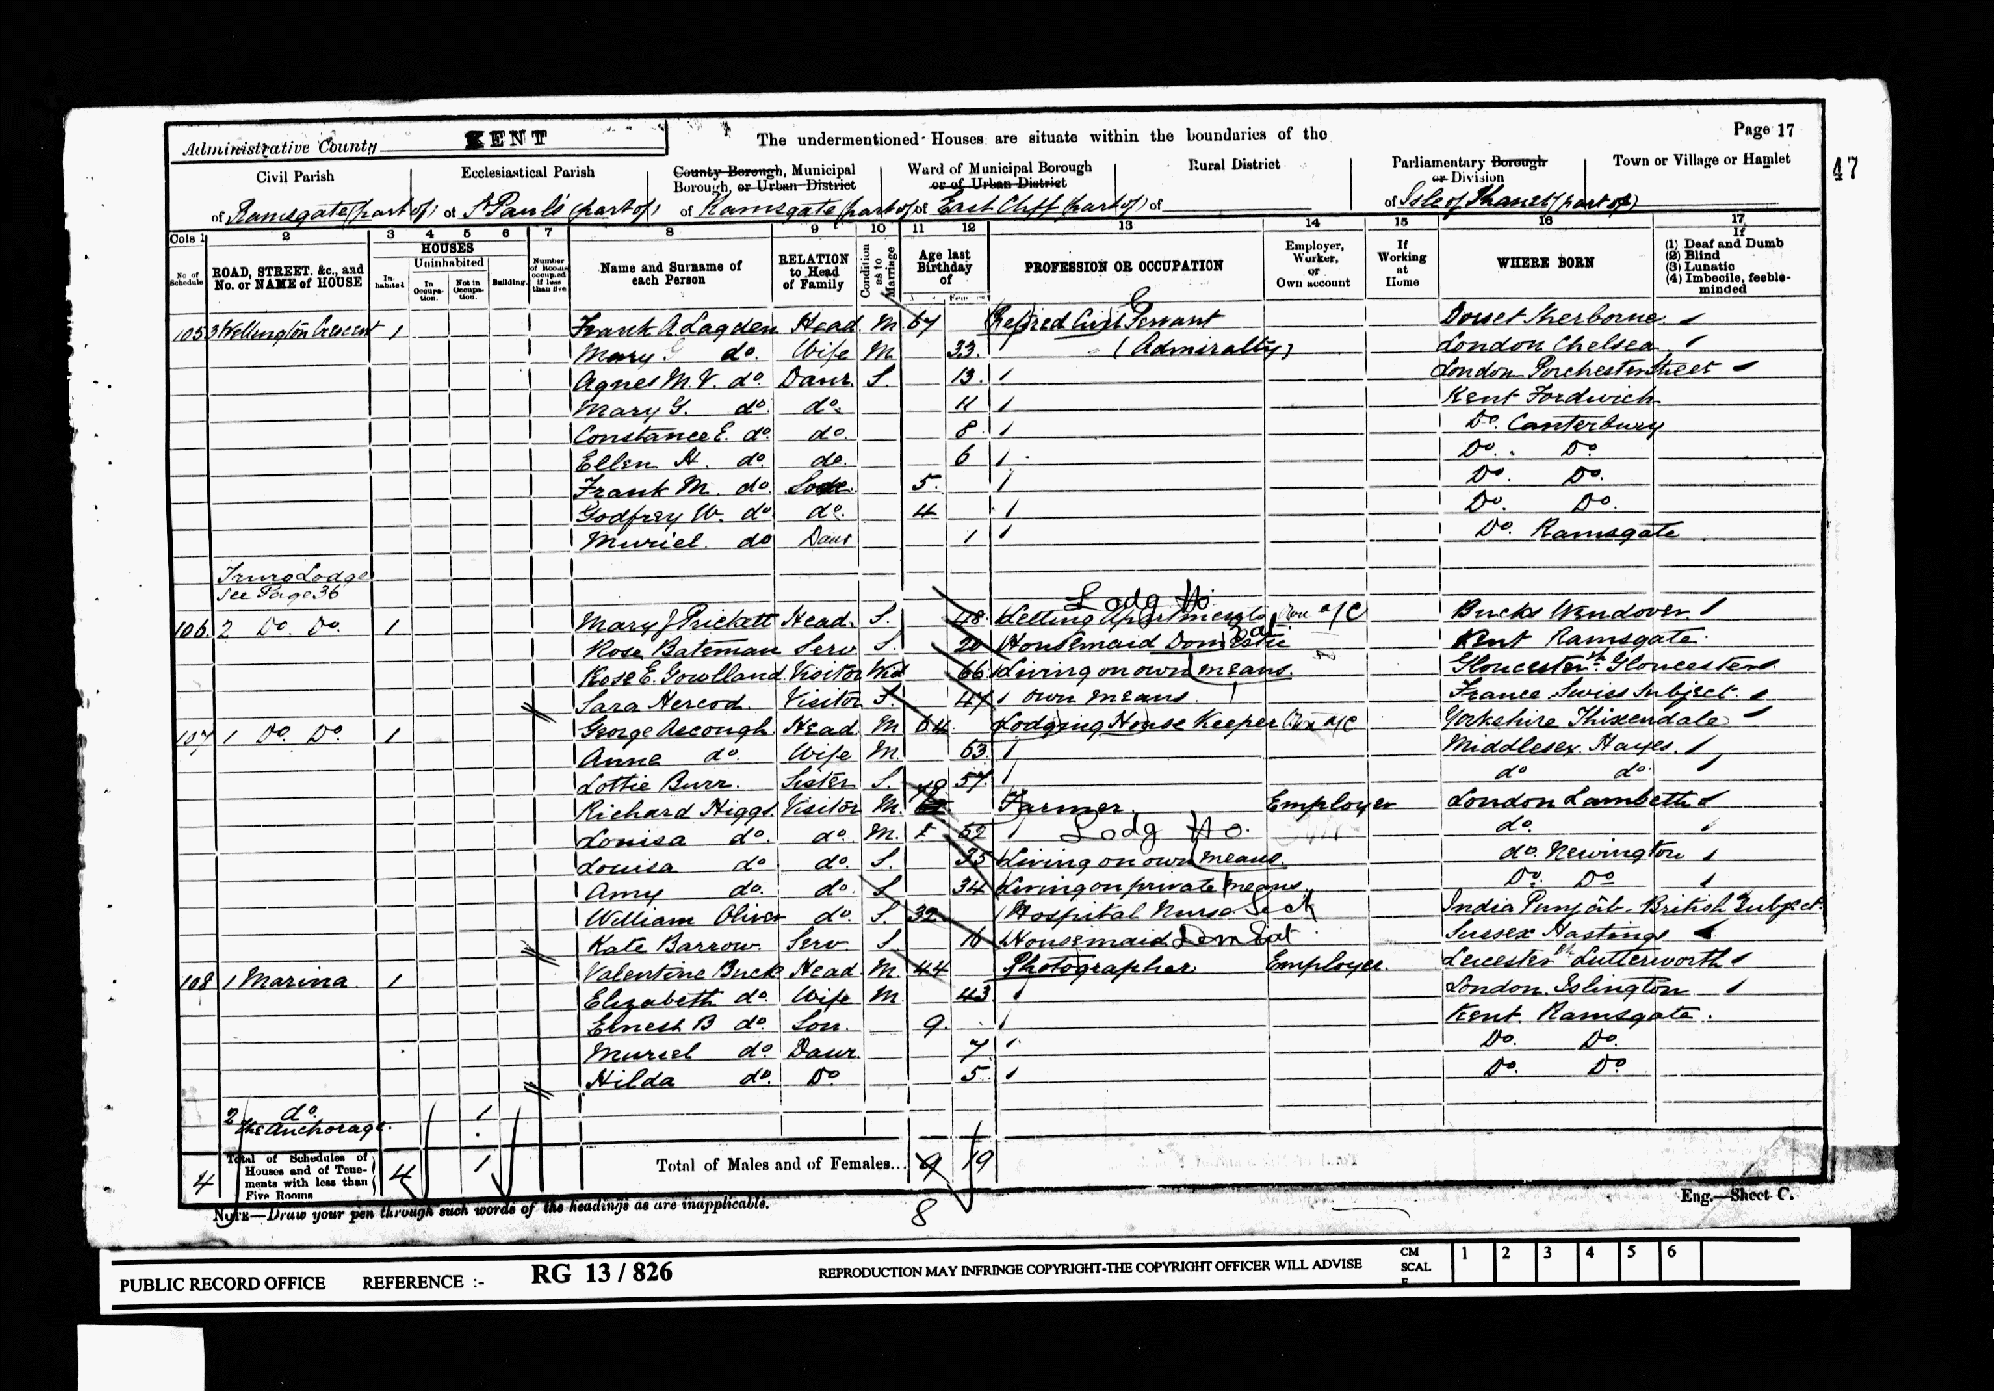 Administrative County KENT
The undermentioned Houses are situate within the boundaries of the
Page 17
47
Civil Parish
Ecclesiastical Parish
County Borough, Municipal Borough, or Urban District
Ward of Municipal Borough or of Urban District
Rural District
Parliamentary Borough or Division
Town or Village or Hamlet
of Ramsgate (part of) of St Paul's (part of) of Ramsgate (part of) of East Cliff (part of) of
of Isle of Thanet (part of)
Cols 1 2 3 4 5 6 7 8 9 10 11 12 13 14 15 16 17
No. of Schedule
ROAD, STREET, &c., and No. or NAME of HOUSE
HOUSES
Inhabited
Uninhabited
In Occupation.
Not in Occupation.
Building.
Number of Rooms occupied if less than five
Name and Surname of each Person
RELATION to Head of Family
Condition as to Marriage
Age last Birthday of
PROFESSION OR OCCUPATION
Employer, Worker, or Own account
If Working at Home
WHERE BORN
If
(1) Deaf and Dumb
(2) Blind
(3) Lunatic
(4) Imbecile, feeble-minded
105 3 Wellington Crescent 1 Frank A Lagden Head M 67 Retired Civil Servant Dorset Sherborne
Mary G do. Wife M 33. (Admiralty) London Chelsea
Agnes M. V. do. Daur. S. 13. London Porchester Street
Mary G. do. do. 11 Kent Fordwich
Constance E. do. do. 8 Do. Canterbury
Ellen H. do. do. 6 Do. Do.
Frank M. do. 5. Do. Do.
Godfrey W. do. do. 4 Do. Do.
Muriel. do Daur 1 Do. Ramsgate
Truro Lodge
See Page 36
Lodg Ho.
106 2 Do. Do. 1 Mary J Prickett Head. S. 48. Letting Apartments Own a/c Bucks Wendover.
Rose Bateman Serv S. 20 Housemaid Domestic Kent Ramsgate.
Rose E. Gowlland Visitor Wid 66 Living on own means. Gloucester Gloucester
Sara Hercod. Visitor S. 47 own means France Swiss Subject.
107 1 Do. Do. 1 George Ascough Head M 64 Lodging House Keeper Own a/c Yorkshire Thixendale
Anne do. Wife M. 53. Middlesex Hayes.
Lottie Burr. Sister S. 57 do do.
Richard Higgs. Visitor M. Farmer. Employer London Lambeth
Louisa do. do. M. 52 Lodg Ho. do.
Louisa do do. S. 35 Living on own means. do. Newington
Amy do. do. S 34 Living on private means. Do. Do
William Oliver do. S. 32 Hospital Nurse Sick India Punjab. British Subject.
Kate Barrow Serv S. 16 Housemaid Dom Sussex Hastings
108 1 Marina 1 Valentine Buck Head M. 44 Photographer Employer. Leicester Lutterworth
Elizabeth do. Wife M 43 London. Islington
Ernest B do. Son. 9. Kent. Ramsgate.
Muriel do. Daur. 7 Do. Do.
Hilda do. Do. 5. Do. Do
2 do. 1
The Anchorage.
4 Total of Schedules of Houses and of Tenements with less than Five Rooms 4 1 Total of Males and of Females... 9 19
8
NOTE—Draw your pen through such words of the headings as are inapplicable.
Eng.—Sheet C.
PUBLIC RECORD OFFICE REFERENCE :- RG 13 / 826 REPRODUCTION MAY INFRINGE COPYRIGHT-THE COPYRIGHT OFFICER WILL ADVISE CM SCALE 1 2 3 4 5 6